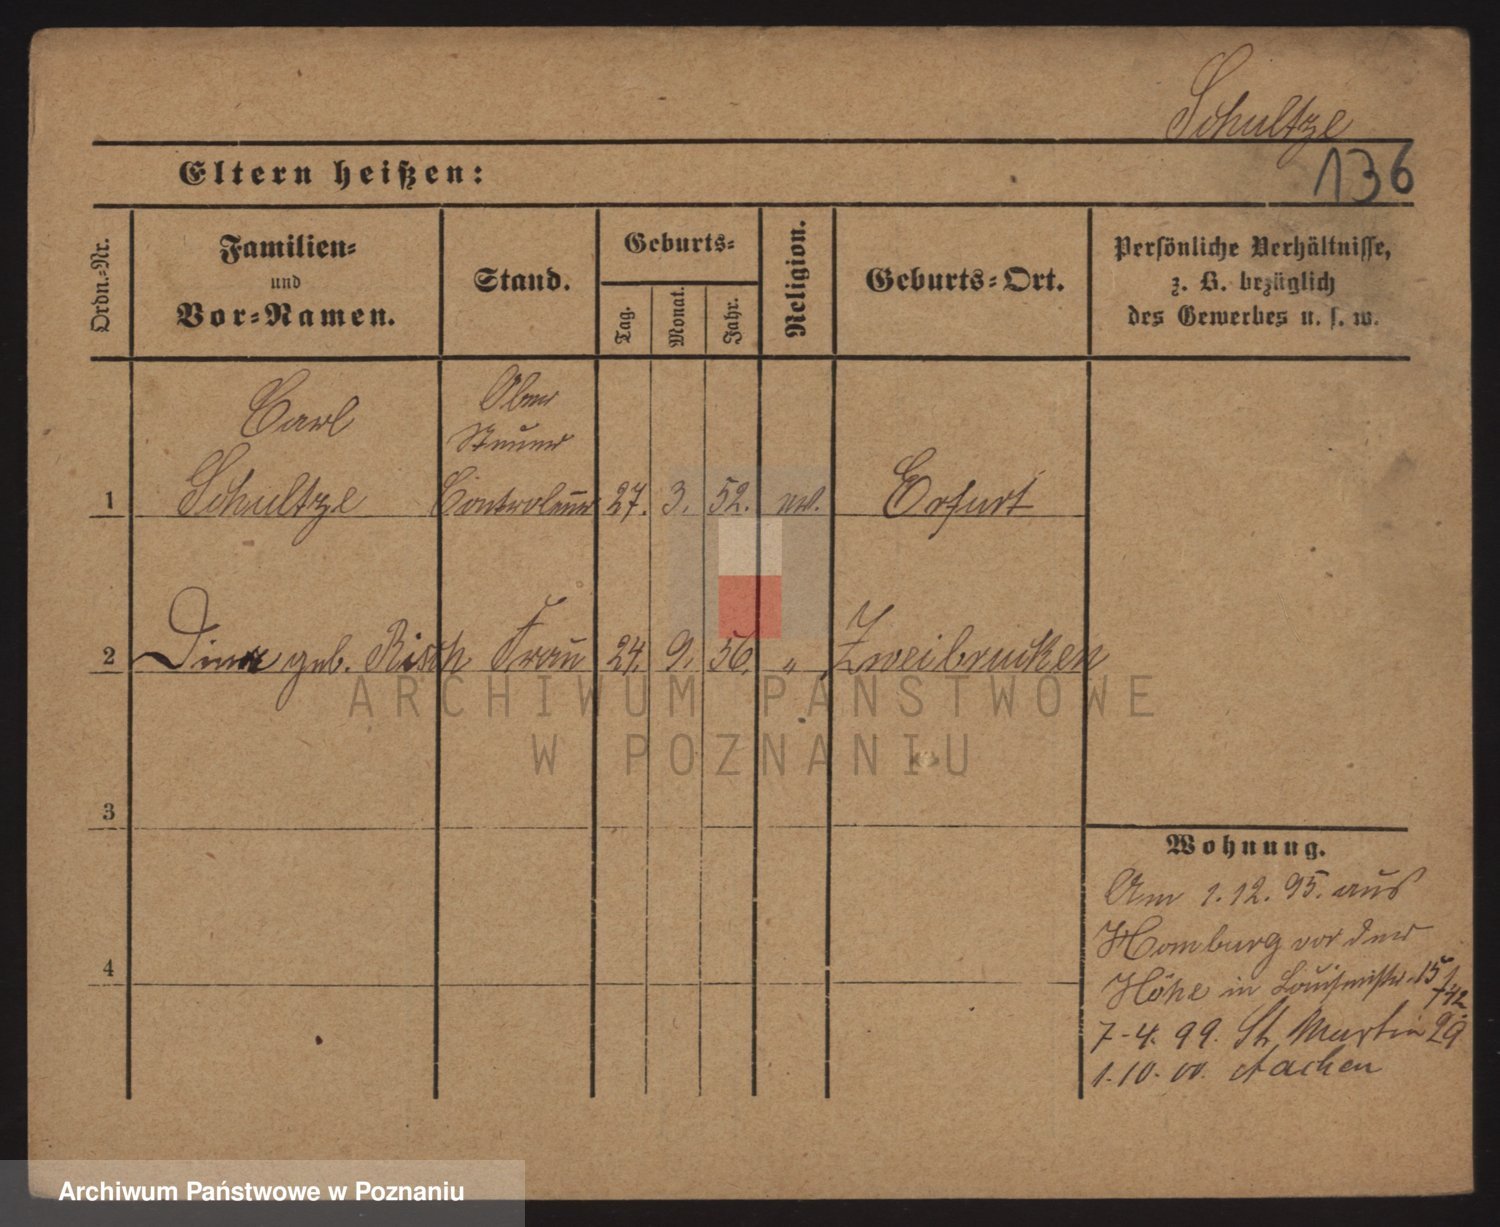 Schultze
136
Eltern heißen:
Ordn.-Nr.
Familien-
und
Vor-Namen.
Stand.
Geburts-
Tag.
Monat.
Jahr.
Religion.
Geburts-Ort.
Persönliche Verhältnisse,
z. B. bezüglich
des Gewerbes u. s. w.
Carl
Ober
Steuer
1 Schultze Controleur 27. 3. 52. ev. Erfurt
2 Dina geb. Risch Frau 24. 9. 56. " Zweibrücken
ARCHIWUM PAŃSTWOWE
W POZNANIU
3
Wohnung.
Am 1.12.95. aus
Homburg vor der
4
Höhe in Louisenstr. 15
7-4. 99. St. Martin 29
1.10.00. Aachen
Archiwum Państwowe w Poznaniu